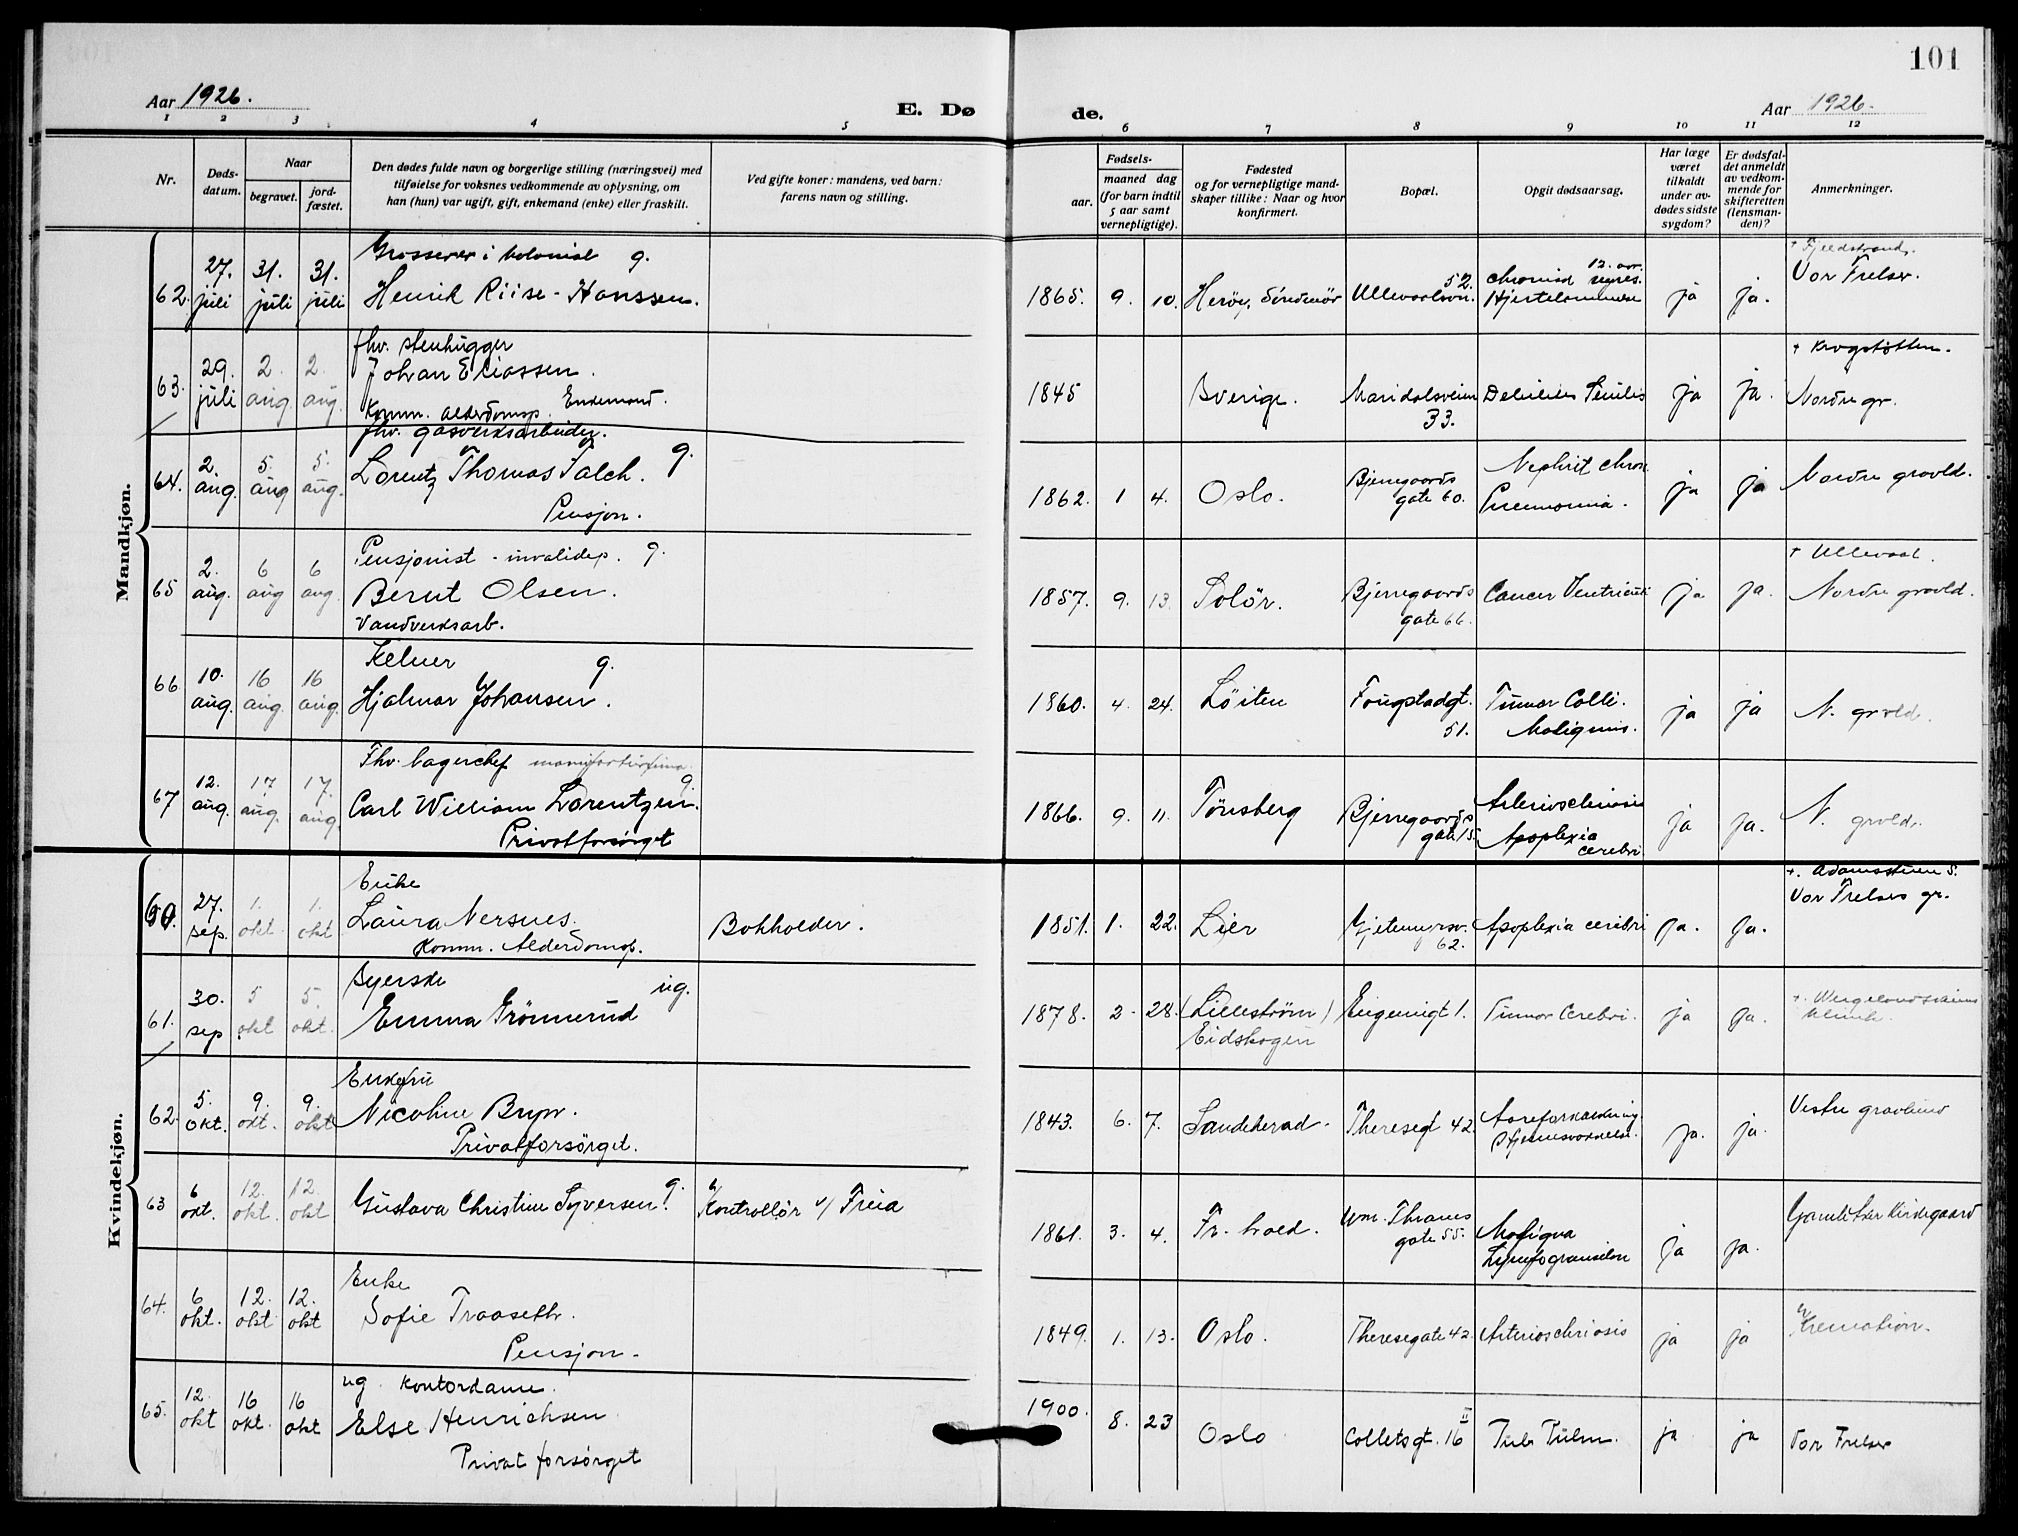 101
Aar 1926.
E. Dø de.
Aar 1926.
1 2 3 4 5 6 7 8 9 10 11 12
Nr.
Døds-
datum.
Naar
begravet.
jord-
fæstet.
Den dødes fulde navn og borgerlige stilling (næringsvei) med
tilføielse for voksnes vedkommende av oplysning, om
han (hun) var ugift, gift, enkemand (enke) eller fraskilt.
Ved gifte koner: mandens, ved barn:
farens navn og stilling.
Fødsels-
aar.
maaned dag
(for barn indtil
5 aar samt
vernepligtige).
Fødested
og for vernepligtige mand-
skaper tillike: Naar og hvor
konfirmert.
Bopæl.
Opgit dødsaarsag.
Har læge
været
tilkaldt
under av-
dødes sidste
sygdom?
Er dødsfal-
det anmeldt
av vedkom-
mende for
skifteretten
(lensman-
den)?
Anmerkninger.
Mandkjøn.
62. 27. juli 31. juli 31. juli
Grosserer i kolonial g.
Henrik Riise-Hanssen.
1865. 9. 10. Herøy, Søndmør
Ullevaalsvn. 52.
12. aar.
Hjertelammelse
ja ja.
+ Fjeldstrand.
Vor Frelser.
63. 29. juli 2. aug. 2. aug.
fhv. stenhugger
Johan Eliassen.
Komm. alderdomsp. Enkemand.
1845 Sverige.
Maridalsveien
33.
Senilis
ja ja.
+ Krogstøtten.
Nordre gr.
64. 2. aug. 5. aug 5. aug.
fhv. gasverksarbeider.
Lorentz Thomas Falch. g.
Pensjon.
1862. 1 4. Oslo.
Bjerregaards
gate 60.
Nephrit chron
Pneumonia.
ja ja
Nordre gravld.
65 2. aug. 6 aug 6 aug.
Pensjonist - invalidep. g.
Bernt Olsen.
Vandverksarb.
1857. 9. 13. Solør.
Bjerregaards
gate 66.
Cancer Ventriculi
ja ja.
+ Ullevaal.
Nordre gravld.
66 10. aug. 16 aug. 16 aug.
Kelner g.
Hjalmar Johansen.
1860. 4. 24. Løiten
Fougstadgt.
51.
Tumor Colli.
Malignus.
ja ja
N. gravld.
67 12. aug. 17 aug. 17. aug.
Fhv. lagerchef
Carl William Lorentzen. g.
Privatforsørget
1866. 9. 11. Tønsberg
Bjerregaards
gate 15.
Arteriosclerosis
Apoplexia
cerebri
ja ja.
N. gravld.
Kvindekjøn.
60. 27. sep. 1. okt. 1. okt
Enke
Laura Nersnes.
Komm. Alderdomsp.
Bokholder.
1851. 1. 22. Lier
Gjetemyrsv.
62.
Apoplexia cerebri
ja. ja.
+. Adamsstuen S.
Vor Frelsers gr.
61. 30. sep 5 okt 5. okt.
Syerske ug.
Emma Grönnerud
1878. 2 28. (Lillestrøm)
Eidskogen
Eugenigt 1.
Tumor Cerebri.
ja ja.
+. Wergelandsveiens
klinik.
62. 5. okt. 9. okt. 9. okt
Enkefru
Nicoline Bryn.
Privatforsørget.
1843. 6. 7. Sandeherad.
Theresegt 42.
Aareforkalkning.
ja. ja.
Vestre gravlund
63 6 okt. 12. okt. 12. okt
Gustava Christine Syversen. g.
Kontrollør v/ Freia
1861. 3. 4. Fr. hald.
Wm. Thranes
gate 55.
Maligna
Lymfogranulom
ja ja.
Gamle Aker Kirkegaard
64. 6 okt. 12. okt 12. okt
Enke
Sofie Traaseth.
Pensjon.
1849. 1. 13. Oslo.
Theresegate 42.
Arteriosclerosis
ja ja
Kremation.
65. 12. okt 16 okt. 16 okt
ug. kontordame.
Else Henrichsen
Privat forsørget
1900. 8. 23 Oslo
Colletsgt. 16 II
Tub. Pulm.
ja ja
Vor Frelser